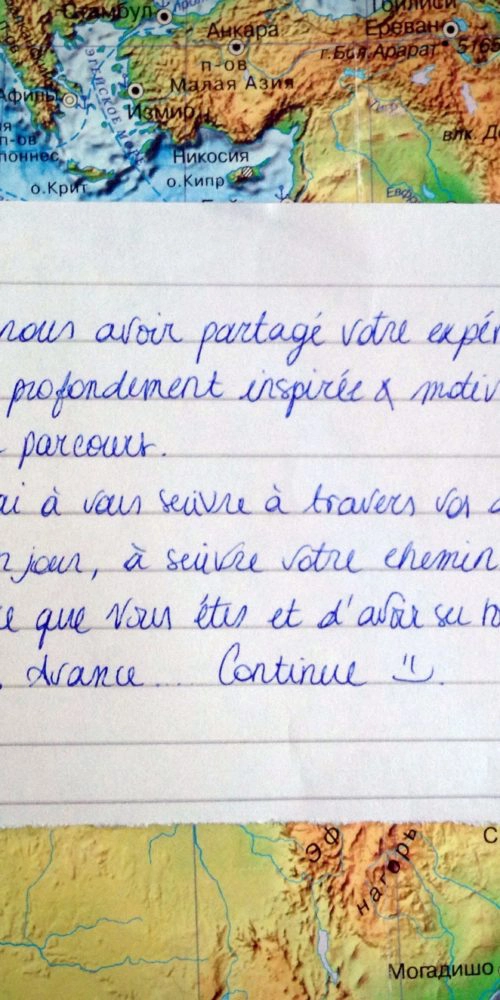 Стамбул
Тбилиси
Анкара
Ереван
г.Бол.Арарат 5165
п-ов
Малая Азия
Афины
ЭГЕЙСКОЕ МОРЕ
Измир
п-ов
Никосия
о.Крит
о.Кипр
Тигр
влк. Д
Евфр
nous avoir partagé votre expér
profondement inspirée & motiv
parcours.
ai à vous suivre à travers vos
n jour, à suivre votre chemin
ce que vous êtes et d'avoir su
Avance... Continue
Эф
нагорь
С
Могадишо